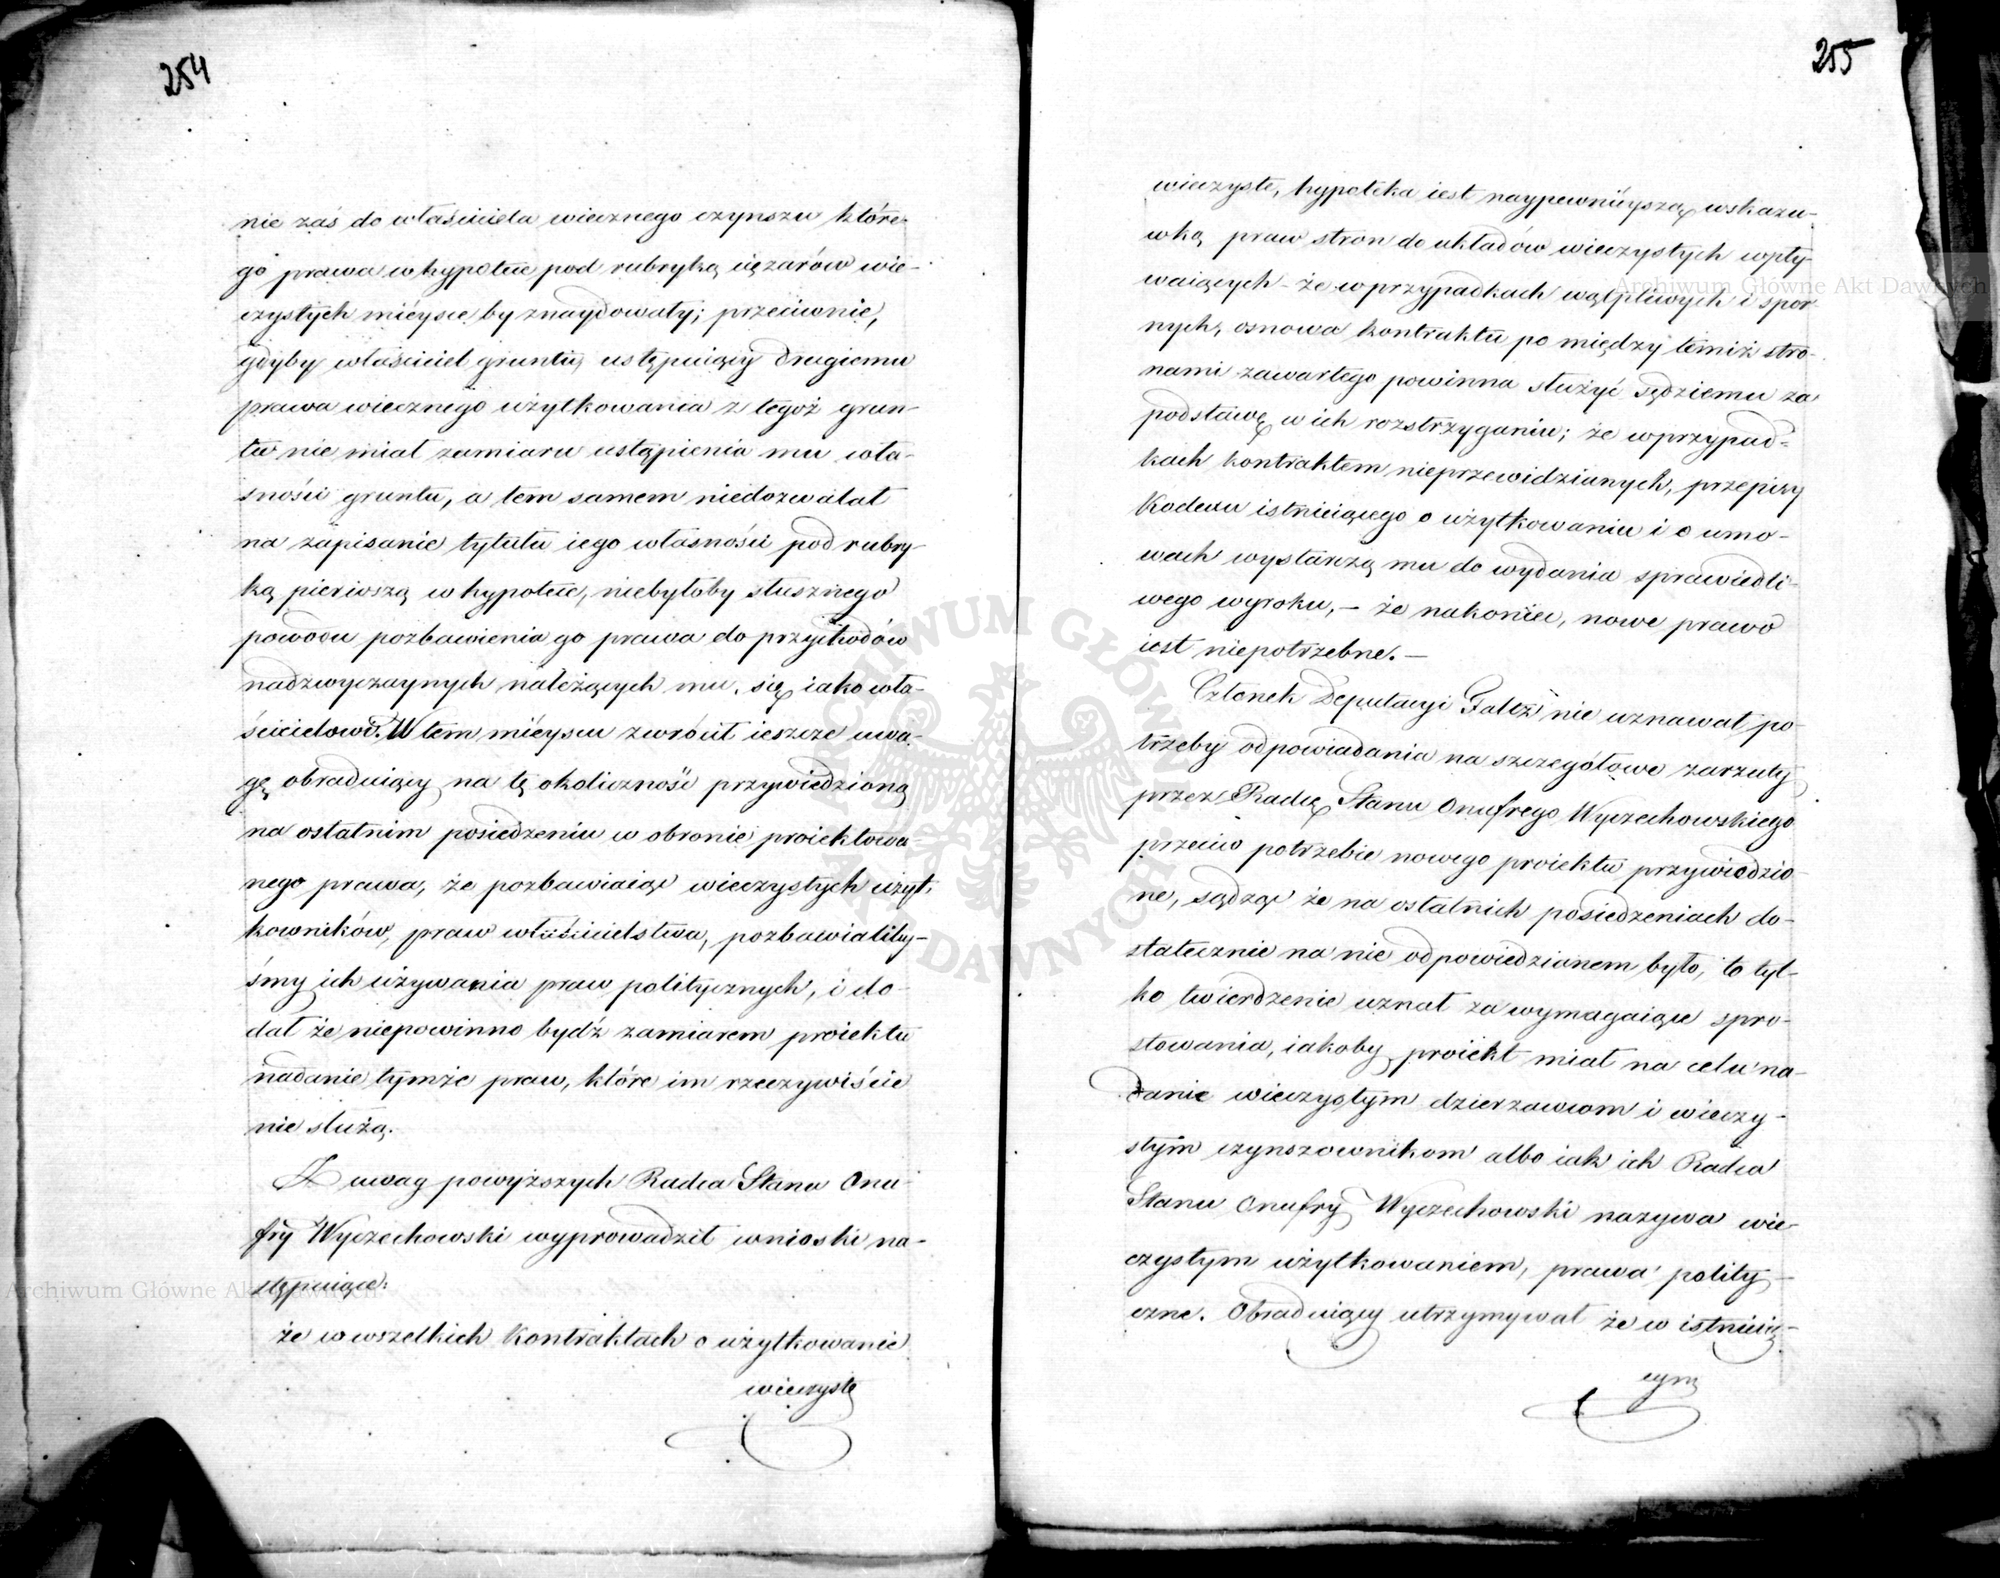 254
nie zaś do właściciela wiecznego czynszu które-
go prawa w hypotece pod rubryką ciężarów wie-
czystych mieysce by znaydowały; przeciwnie,
gdyby właściciel gruntu, ustępuiący drugiemu
prawa wiecznego użytkowania z tegoż grun-
tu nie miał zamiaru ustąpienia mu wła-
sności gruntu, a tem samem niedozwalał
na zapisanie tytułu iego własności pod rubry-
ką pierwszą w hypotece, niebyłoby słusznego
powodu pozbawienia go prawa do przychodów
nadzwyczaynych należących mu się iako wła-
ścicielowi. W tem mieyscu zwrócił ieszcze uwa-
gę obraduiący na tę okoliczność przywiedzioną
na ostatnim posiedzeniu w obronie proiektowa-
nego prawa, że pozbawiaiąc wieczystych użyt-
kowników, praw właścicielstwa, pozbawialiby-
śmy ich używania praw politycznych, i do-
dał że niepowinno bydź zamiarem proiektu
nadanie tymże praw, które im rzeczywiście
nie służą.
Z uwag powyższych Radca Stanu Onu-
fry Wyczechowski wyprowadził wnioski na-
stępuiące:
że w wszelkich kontraktach o użytkowanie
wieczyste
255
wieczyste, hypoteka iest naypewnieyszą wskazu-
wką praw stron do układów wieczystych wpły-
waiących – że w przypadkach wątpliwych i spor-
nych, osnowa kontraktu po między temiż stro-
nami zawartego powinna służyć sędziemu za
podstawę w ich rozstrzyganiu; że w przypad-
kach kontraktem nieprzewidzianych, przepisy
Kodexu istnieiącego o użytkowaniu i o umo-
wach wystarczą mu do wydania sprawiedli-
wego wyroku, – że nakoniec, nowe prawo
iest niepotrzebne. –
Członek Deputacyi Faltz nie uznawał po-
trzeby odpowiadania na szczegółowe zarzuty
przez Radcę Stanu Onufrego Wyczechowskiego
przeciw potrzebie nowego proiektu przywiedzio-
ne, sądząc że na ostatnich posiedzeniach do-
statecznie na nie odpowiedzianem było, to tyl-
ko twierdzenie uznał za wymagaiące spro-
stowania, iakoby proiekt miał na celu na-
danie wieczystym dzierzawcom i wieczy-
stym czynszownikom albo iak ich Radca
Stanu Onufry Wyczechowski nazywa wie-
czystym użytkowaniem, prawa polity-
czne. Obraduiący utrzymywał że w istnieią-
cym